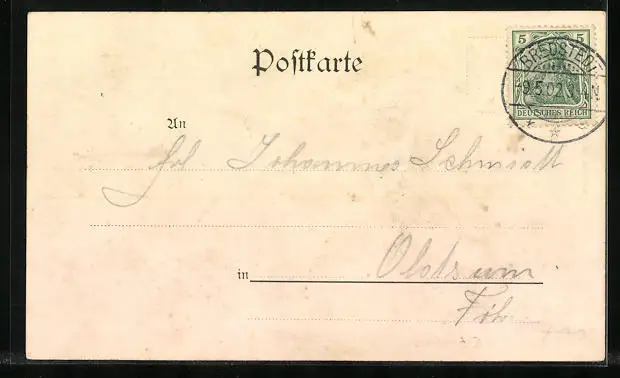 Postkarte
5 5
BREDSTEDT
9.5.02
DEUTSCHES REICH
An
Johannes Schmidt
in Olds um
Föhr